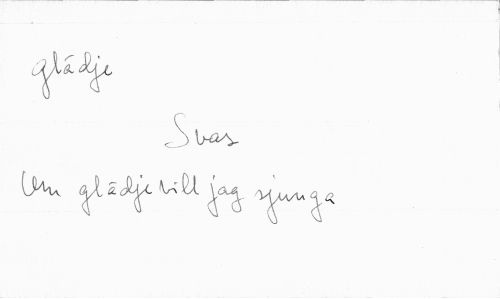 glädje
Svas
Om glädje vill jag sjunga